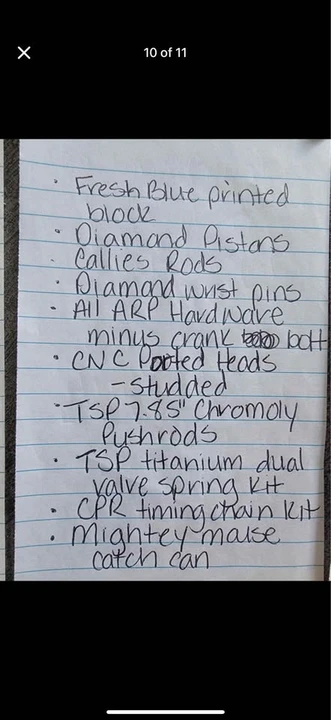 10 of 11
• Fresh Blue printed
block
• Diamond Pistons
• Callies Rods
• Diamond wrist pins
• All ARP Hardware
minus crank bolt
• CNC Ported Heads
- Studded
• TSP 7.85" Chromoly
Pushrods
• TSP titanium dual
valve spring kit
• CPR timing chain kit
• Mightey mouse
catch can